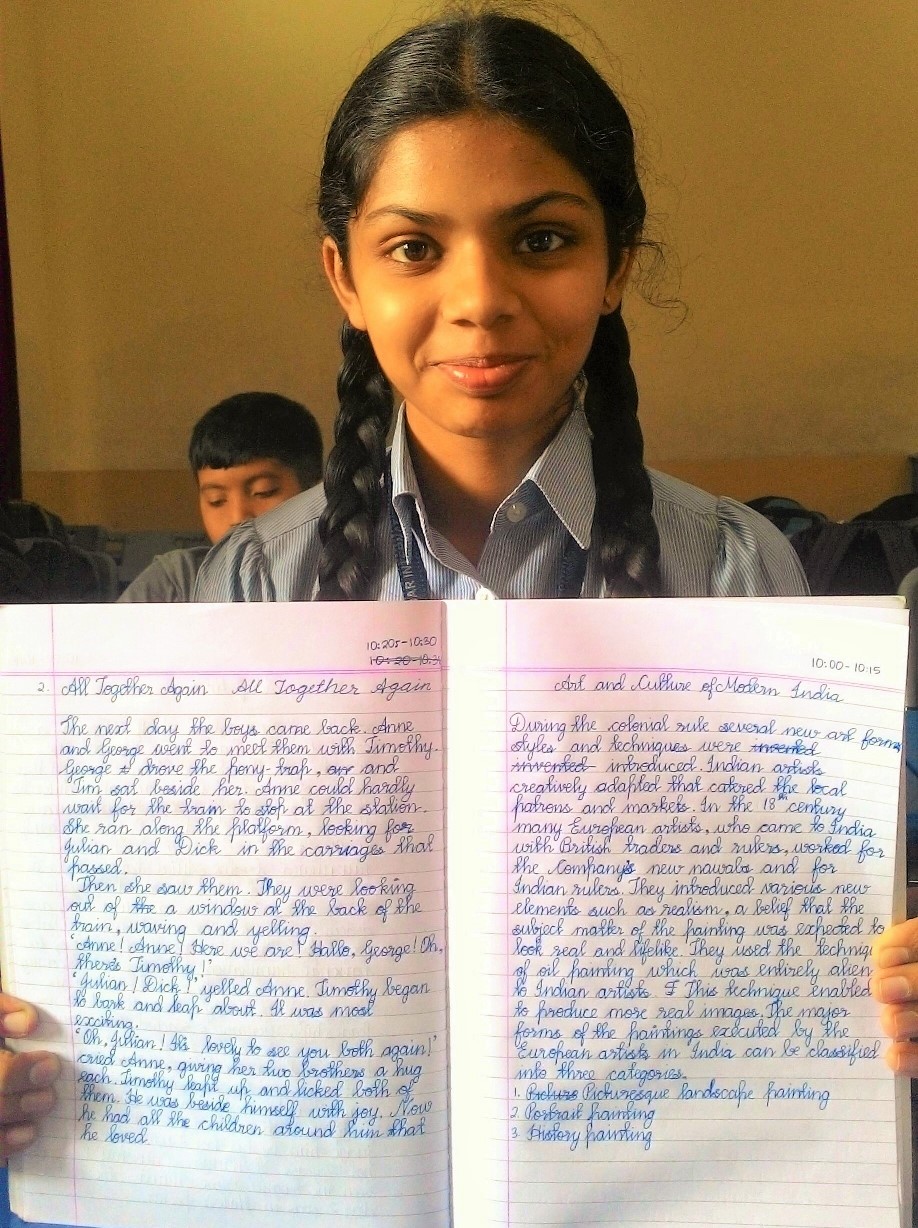 AR IN
10:205-10:30
10:20-10:3
2. All Together Again All Together Again
The next day the boys came back. Anne
and George went to meet them with Timothy.
George drove the pony-trap, and
Tim sat beside her. Anne could hardly
wait for the train to stop at the station.
She ran along the platform, looking for
Julian and Dick in the carriages that
passed.
Then she saw them. They were looking
out of the a window at the back of the
train, waving and yelling.
'Anne! Anne! Here we are! Hallo, George! Oh,
there's Timothy!'
'Julian! Dick!' yelled Anne. Timothy began
to bark and leap about. It was most
exciting.
'Oh, Julian! It's lovely to see you both again!'
cried Anne, giving her two brothers a hug
each. Timothy leapt up and licked both of
them. He was beside himself with joy. Now
he had all the children around him that
he loved.
10:00-10:15
Art and Culture of Modern India
During the colonial rule several new art forms
styles and techniques were invented
invented introduced. Indian artists
creatively adapted that catered the local
patrons and markets. In the 18th century
many European artists, who came to India
with British traders and rulers, worked for
the Company's new nawabs and for
Indian rulers. They introduced various new
elements such as realism, a belief that the
subject matter of the painting was expected to
look real and lifelike. They used the techniq
of oil painting which was entirely alien
to Indian artists. This technique enabled
to produce more real images. The major
forms of the paintings executed by the
European artists in India can be classified
into three categories.
1. Picture Picturesque landscape painting
2. Portrait painting
3. History painting